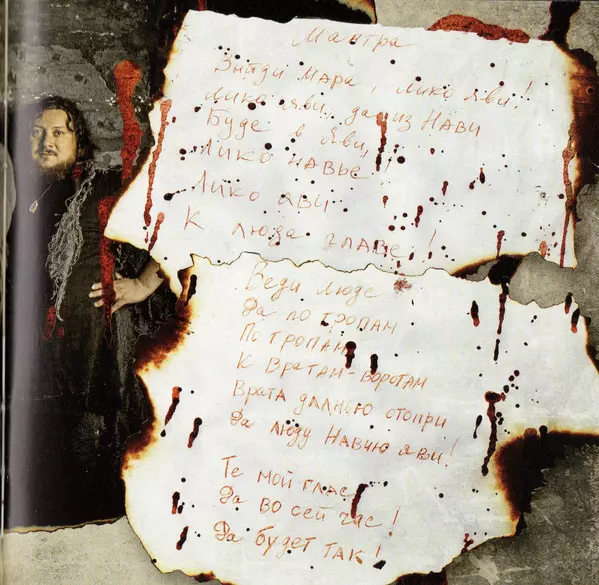 Мантра
Знйди Мара, лико яви!
Лико яви, да из Нави
Буде в Яви,
Лико навье!
Лико яви
К люда главе!
Веди люде
Да по тропам
По тропам
К Вратам-воротам
Врата дланою отопри
Да люду Навию яви!
Те мой глас
Да во сей час!
Да будет так!